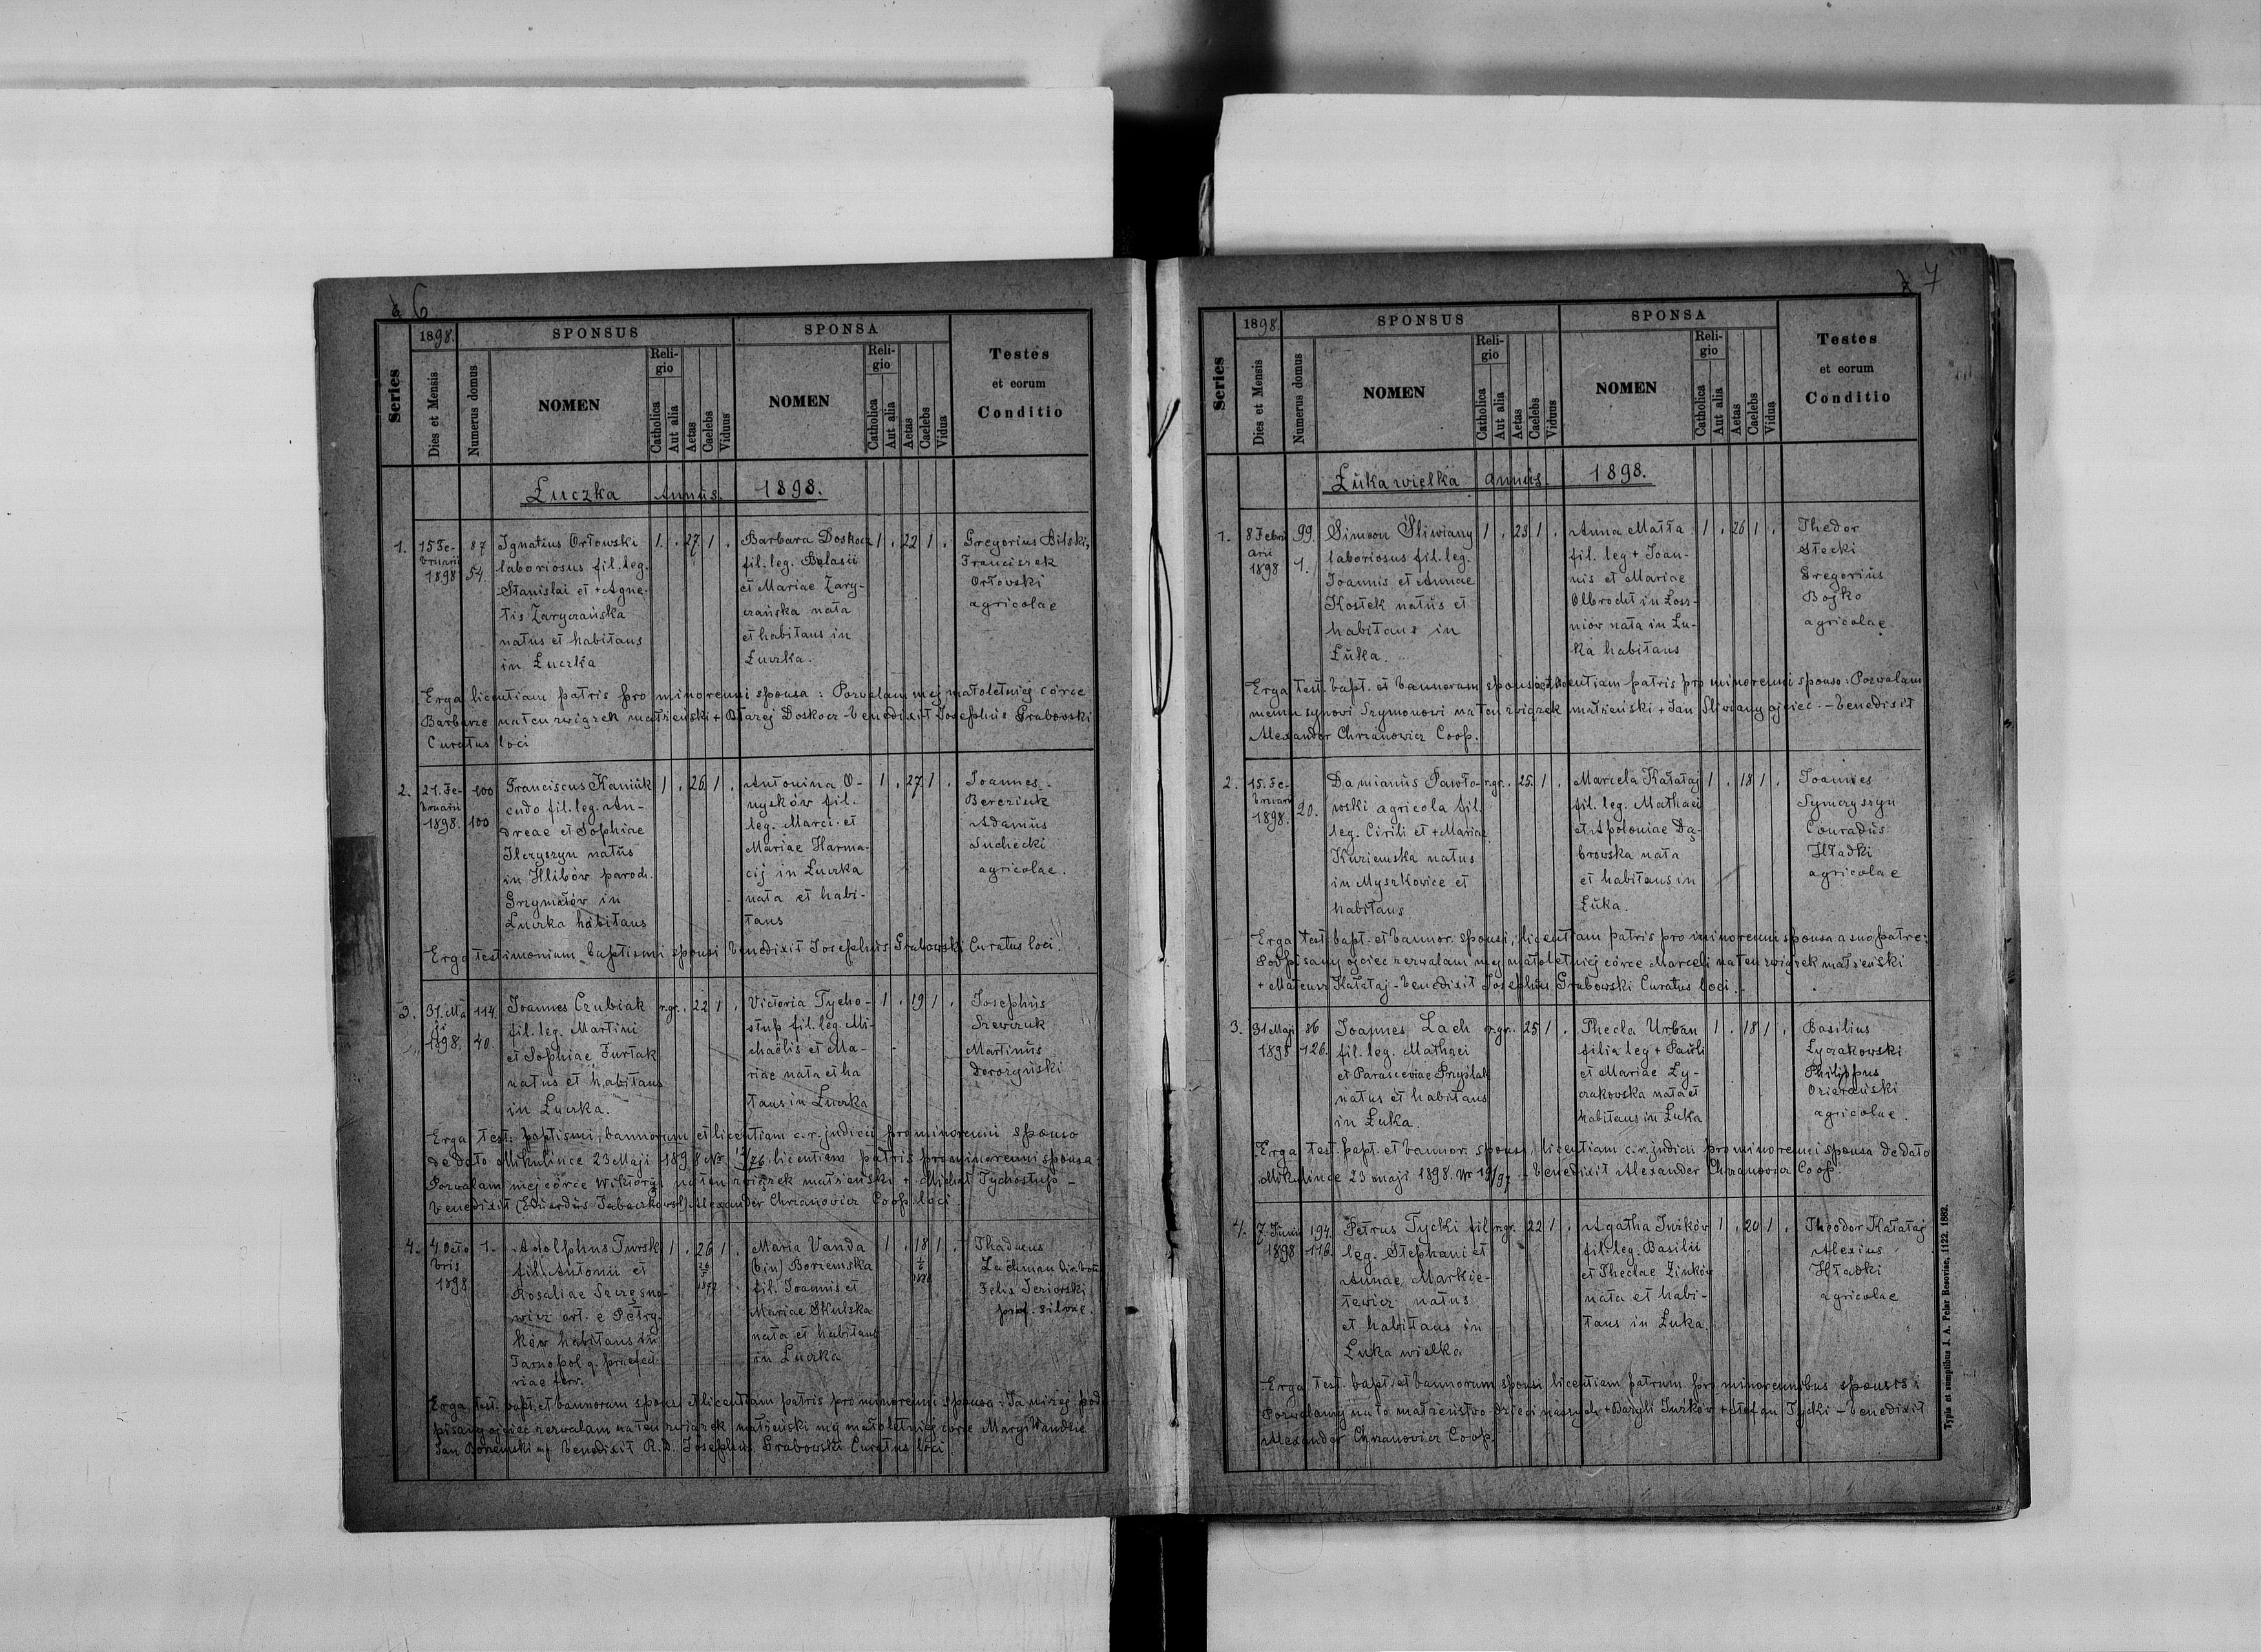 6
1898.
SPONSUS
SPONSA
Series
Dies et Mensis
Numerus domus
NOMEN
Religio
Catholica
Aut alia
Aetas
Caelebs
Viduus
NOMEN
Religio
Catholica
Aut alia
Aetas
Caelebs
Vidua
Testes
et eorum
Conditio
Łuczka Annus. 1898.
1.
15 Fe-
bruarii
1898
87
54.
Ignatius Orłowski
laboriosus fil. leg.
Stanislai et + Agne-
tis Zaryczańska
natus et habitans
in Łuczka
1 . 27 1 .
Barbara Doskocz
fil. leg. Blasii
et Mariae Zary-
czańska nata
et habitans in
Łuczka.
1 . 22 1 .
Gregorius Bilski,
Franciszek
Orłowski
agricolae
Erga licentiam patris pro minorenni sponsa: Pozwalam mej małoletniej córce
Barbarze na ten związek małżeński + Błażej Doskocz - benedixit Josephus Grabowski
Curatus loci
2.
21. Fe-
bruarii
1898.
100
100
Franciscus Kaniuk
cudo fil. leg. An-
dreae et Sophiae
Ilczyszyn natus
in Hlibów paroch.
Grzymałów in
Łuczka habitans
1 . 26 1 .
Antonina O-
nysków fil.
leg. Marci et
Mariae Harma-
cij in Łuczka
nata et habi-
tans
1 . 27 1 .
Joannes
Bereziuk
Adamus
Suchecki
agricolae.
Erga testimonium baptismi sponsi benedixit Josephus Grabowski Curatus loci.
3.
31. Ma
ji
1898.
114.
40.
Joannes Czubiak
fil. leg. Martini
et Sophiae Furtak
natus et habitans
in Łuczka.
r.gr. . 22 1 .
Victoria Tycho-
stup fil. leg. Mi-
chaëlis et Ma-
riae nata et ha
tans in Łuczka
1 . 19 1 .
Josephus
Szewczuk
Martinus
Dorozyński
Erga test. baptismi, bannorum et licentiam c. r. judicii pro minorenni sponso
de dato Mikulince 23 Maji 1898 Nr licentiam patris pro minorenni sponsa
Pozwalam mej córce Wiktoryi na ten związek małżeński + Michał Tychostup -
benedixit Alexander Chrzanowicz Coop. loci
4.
4 Octo
bris
1898
1.
Adolphus Turski
fil. Antonii et
Rosaliae
ort. e Petry-
ków habitans in
Tarnopol
1 . 26 1 .
Maria Vanda
(bin) Borzemska
fil. Joannis et
Mariae Skulska
nata et habitans
in Łuczka
1 . 18 1 .
Thadaeus
Lachman
Felix
silvae.
Erga test. bapt. et bannorum sponsi et licentiam patris pro minorenni sponsa: Ja niżej pod
pisany ojciec zezwalam na ten związek małżeński mej małoletniej córce Maryi Wandzie
Jan Borzemski benedixit R. D. Josephus Grabowski Curatus loci
7
1898.
SPONSUS
SPONSA
Series
Dies et Mensis
Numerus domus
NOMEN
Religio
Catholica
Aut alia
Aetas
Caelebs
Viduus
NOMEN
Religio
Catholica
Aut alia
Aetas
Caelebs
Vidua
Testes
et eorum
Conditio
Łuka wielka annus. 1898.
1.
8 Febru
arii
1898
99.
1.
Simeon Śliwiany
laboriosus fil. leg.
Joannis et Annae
Kostek natus et
habitans in
Łuka.
1 . 23 1 .
Anna Malta
fil. leg + Joan-
nis et Mariae
Olbrocht in Łoss-
niów nata in Łu-
ka habitans
1 . 26 1 .
Thedor
Stecki
Gregorius
Bojko
agricolae.
Erga test. bapt. et bannorum sponsi et licentiam patris pro minorenni sponso: Pozwalam
memu synowi Szymonowi na ten związek małżeński + Jan Śliwiany ojciec. - benedixit
Alexander Chrzanowicz Coop.
2.
15. Fe-
bruarii
1898.
20.
Damianus Pawło-
wski agricola fil.
leg. Cirili et + Mariae
Kuziemska natus
in Myszkowice et
habitans
r.gr. . 25. 1 .
Marcela Kałałaj
fil. leg. Mathaei
et Apoloniae Dą-
browska nata
et habitans in
Łuka.
1 . 18 1 .
Joannes
Symczyszyn
Conradus
Hładki
agricolae
Erga test. bapt. et bannor. sponsi, licentiam patris pro minorenni sponsa a suo patre:
Podpisany ojciec zezwalam mej małoletniej córce Marceli na ten związek małżeński
+ Mateusz Kałałaj - benedixit Josephus Grabowski Curatus loci.
3.
31 Maji
1898
86
126.
Joannes Lach
fil. leg. Mathaei
et Parasceviae Przysłak
natus et habitans
in Łuka.
r.gr. . 25 1 .
Thecla Urban
filia leg + Pauli
et Mariae Ły-
czakowska nata et
habitans in Łuka
1 . 18 1 .
Basilius
Łyczakowski
Philippus
agricolae.
Erga test. bapt. et bannor. sponsi, licentiam c. r. judicii pro minorenni sponsa de dato
Mikulince 23 maji 1898. Nr 19/97 - benedixit Alexander Chrzanowicz Coop.
4.
7. Junii
1898
194.
116.
Petrus Tycki fil
leg. Stephani et
Annae Markie-
tewicz natus
et habitans in
Łuka wielka
r.gr. . 22 1 .
Agatha Jurków
fil. leg. Basilii
et Theclae Zinków
nata et habi-
tans in Łuka.
1 . 20 1 .
Theodor Kałałaj
Alexius
Hładki
agricolae
Erga test. bapt. et bannorum sponsi licentiam patrum pro minorennibus sponsis:
Pozwalamy na to małżeństwo dzieci naszych + Bazyli Jurków + Stefan Tycki - benedixit
Alexander Chrzanowicz Coop.
Typis et sumptibus J. A. Pelar Resoviae, 1122. 1882.